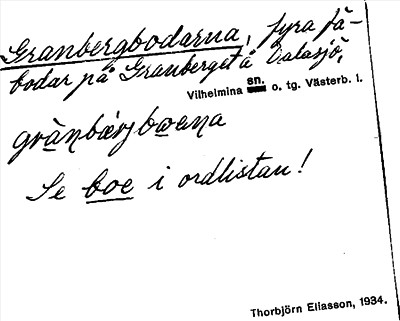 Granbergbodarna, fyra fä-
bodar på Granberget å Dalasjö,
Vilhelmina sn. o. tg. Västerb. l.
grànbærjbωena
Se boe i ordlistan!
Thorbjörn Eliasson, 1934.